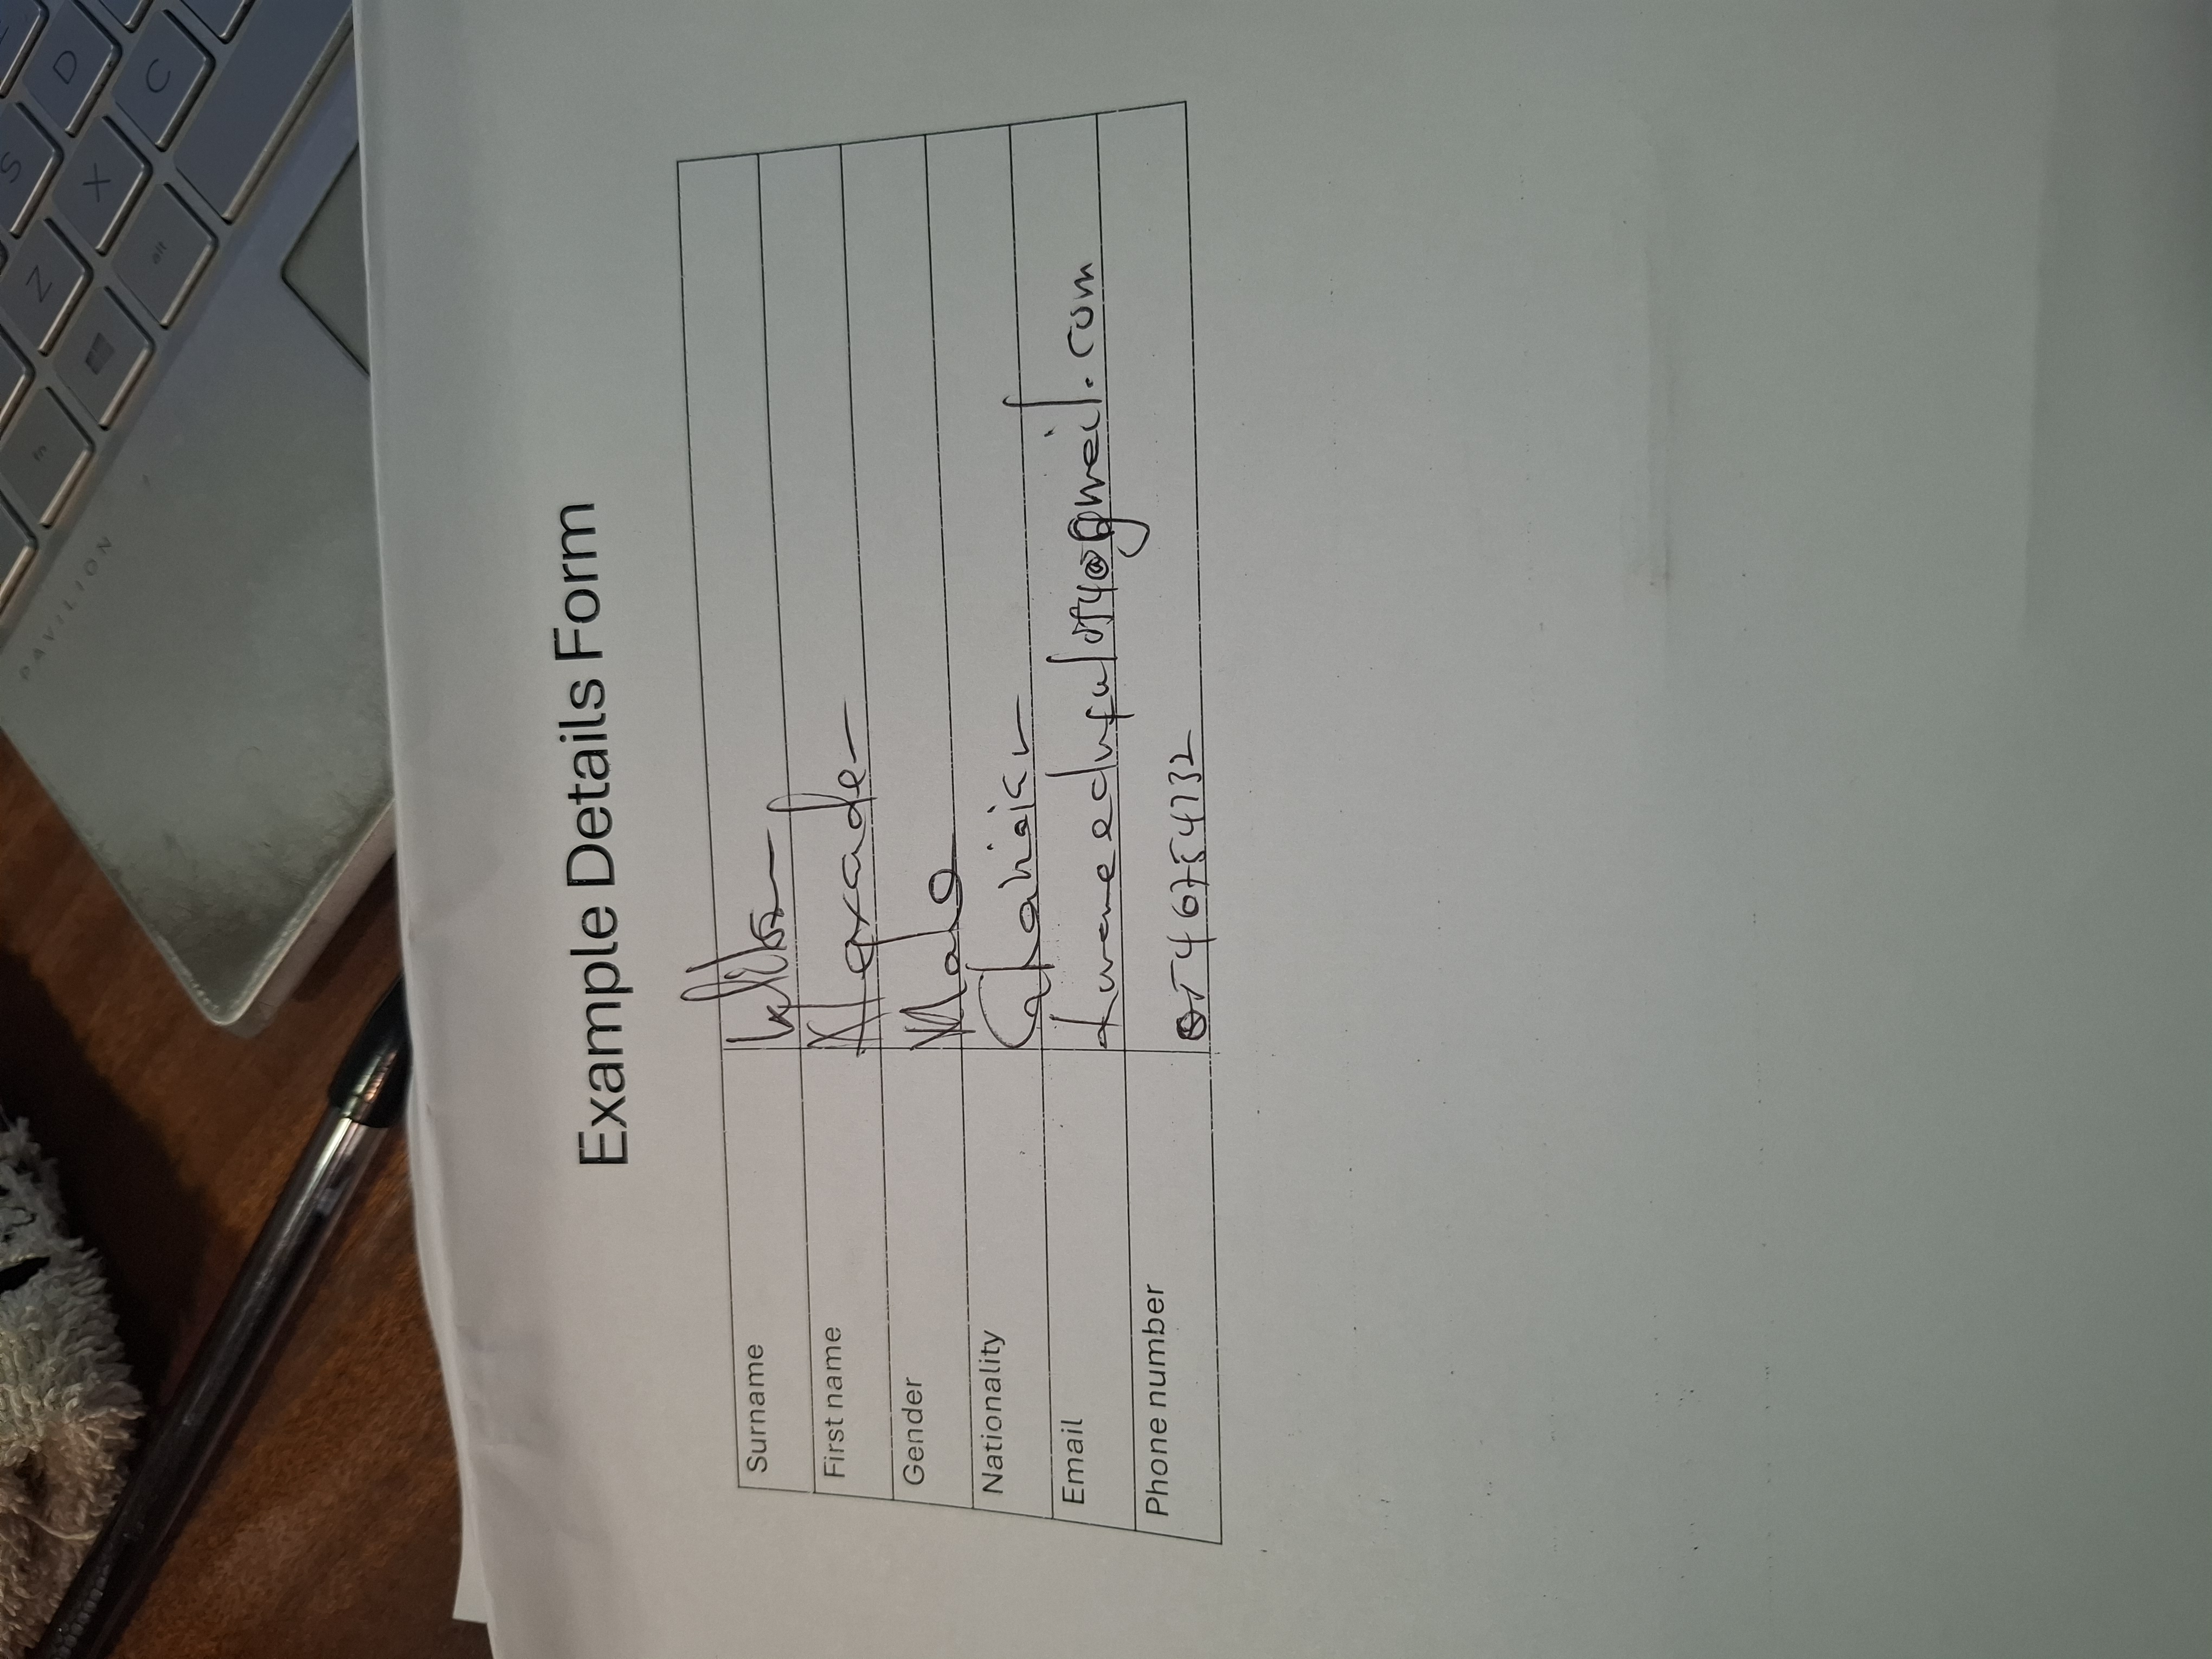 PAVILION
fn
Z
S
D
X
alt
C
Example Details Form
Surname
First name Alexader
Gender Male
Nationality Ghanaian
Email @gmail.com
Phone number 0546754732